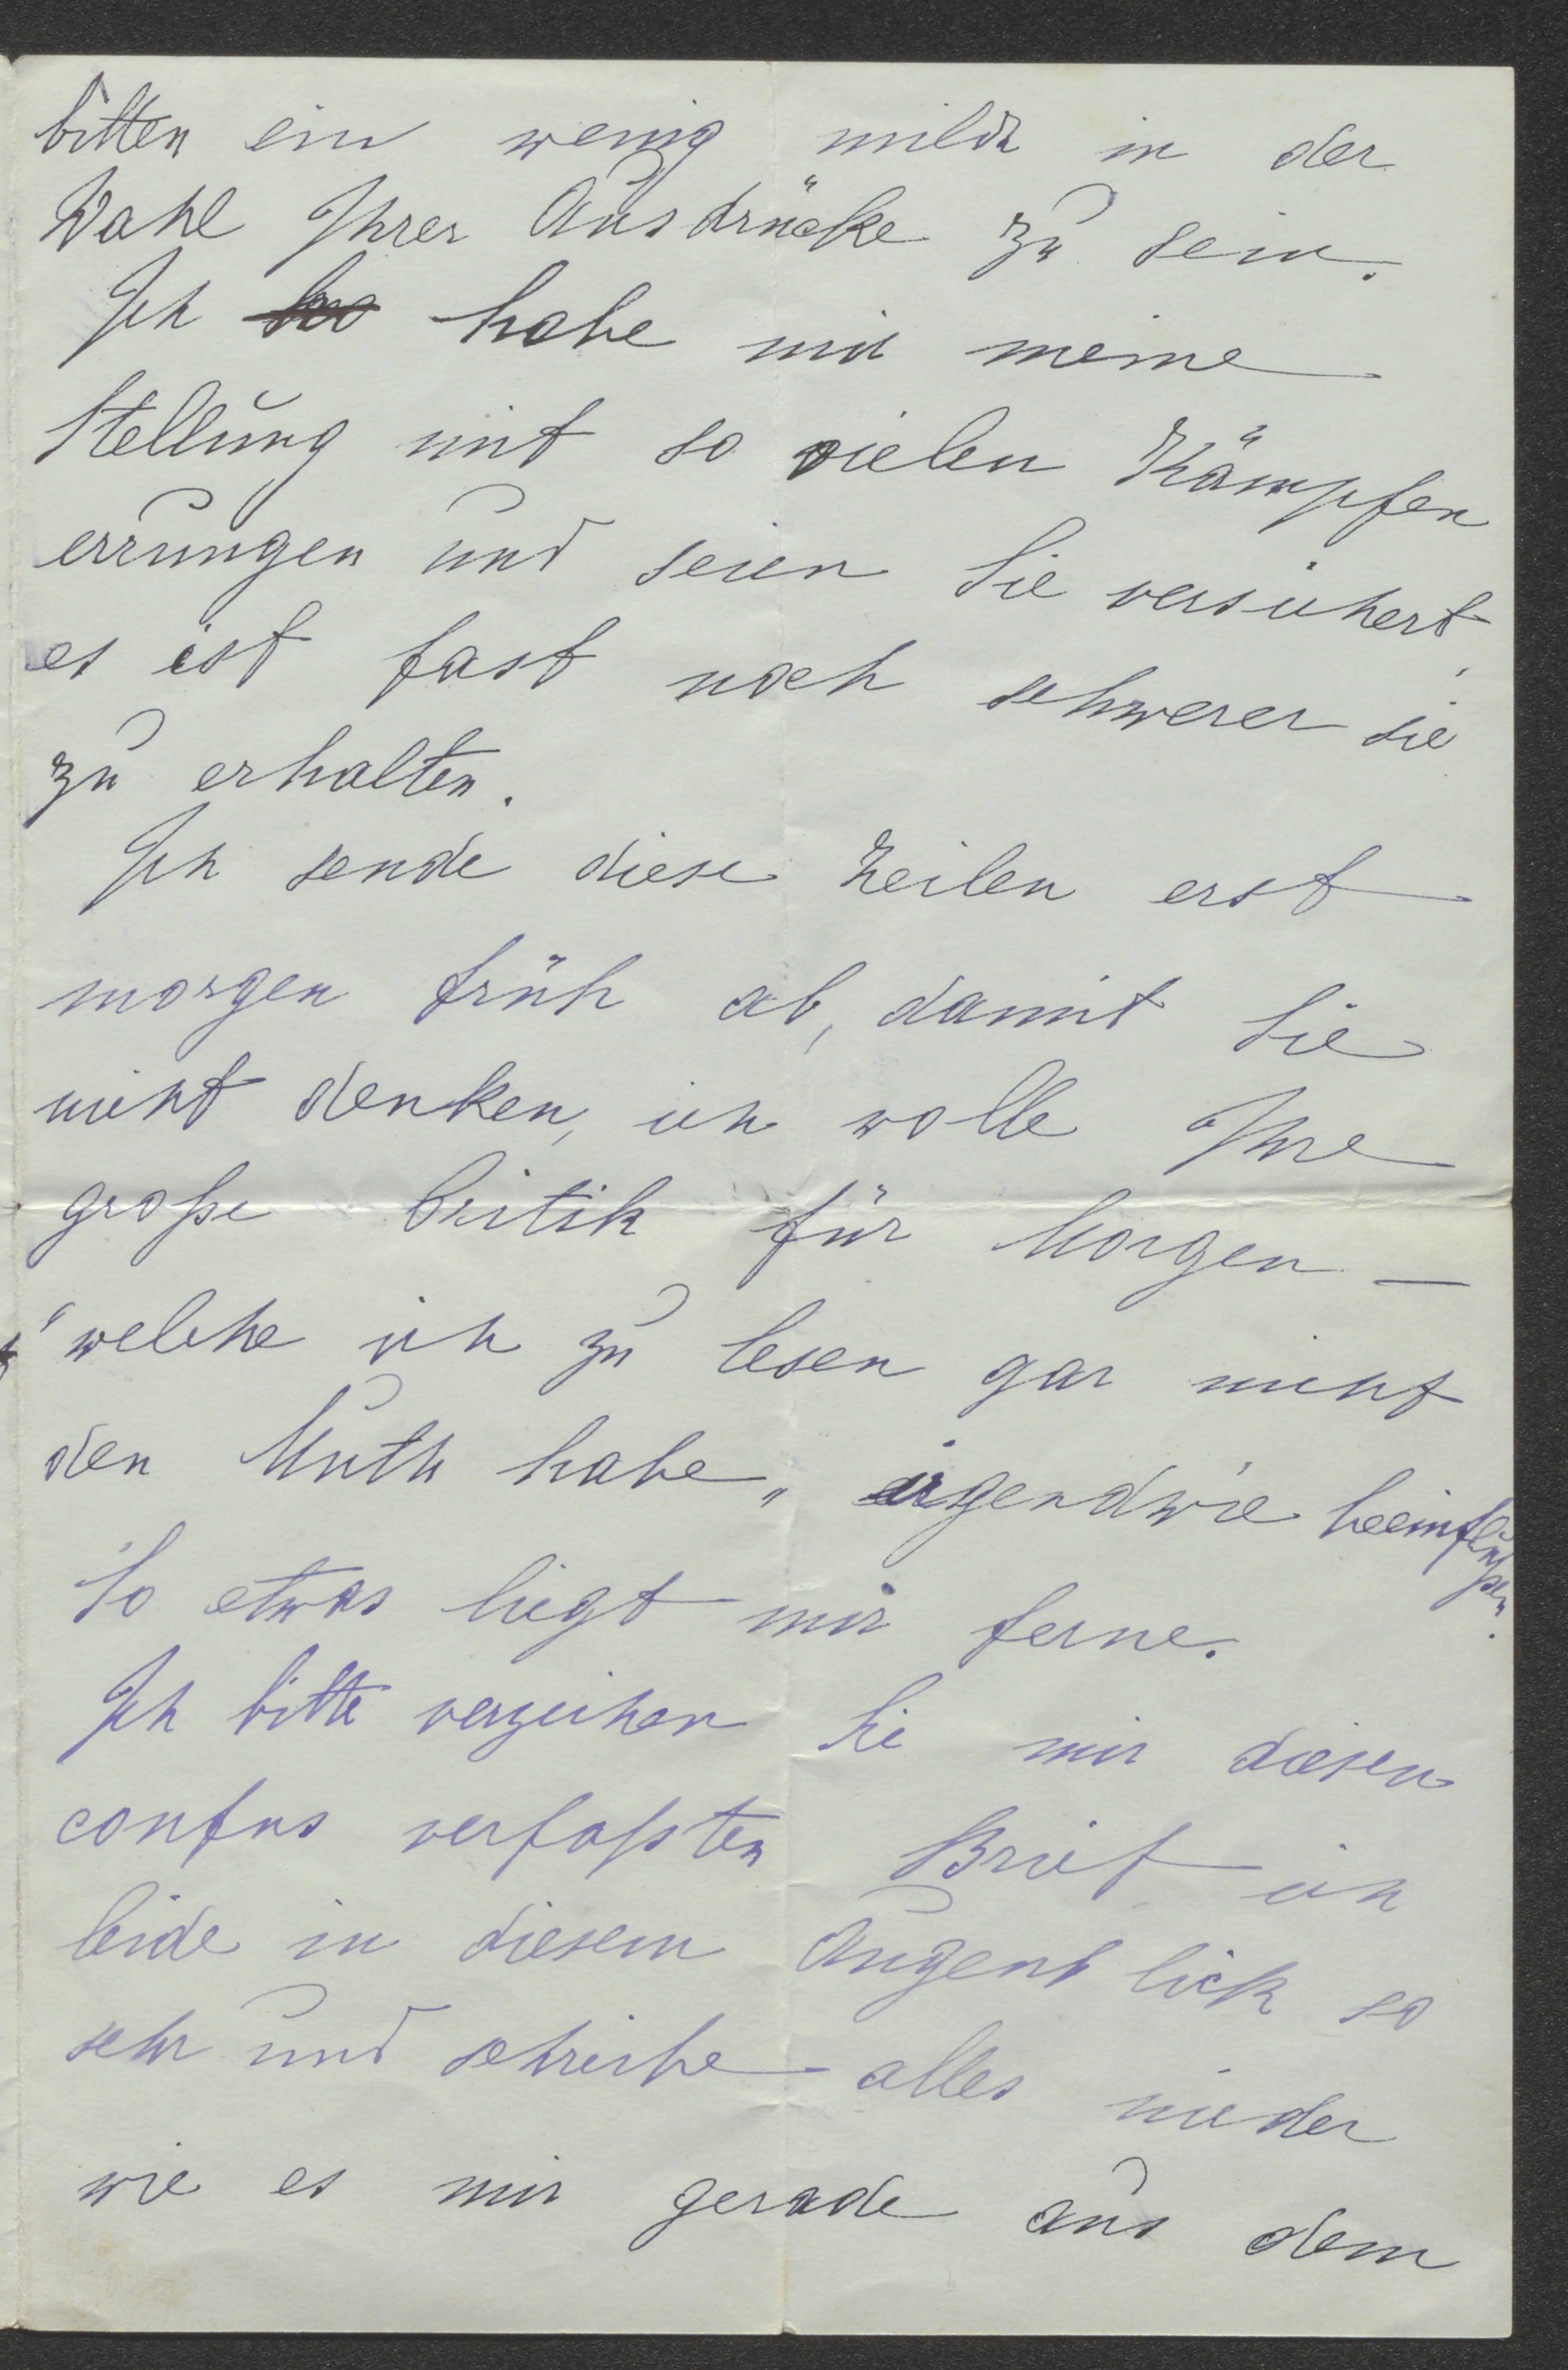 bitten ein wenig milde in der
Wahl Ihrer Ausdrücke zu sein.
Ich habe mir meine
Stellung mit so vielen Kämpfen
errungen und seien Sie versichert,
es ist fast noch schwerer sie
zu erhalten.
Ich sende diese Zeilen erst
morgen früh ab, damit Sie
nicht denken, ich wolle Ihre
große Critik für Morgen —
"welche ich zu lesen gar nicht
den Muth habe" irgendwie beeinflußen.
So etwas liegt mir ferne.
Ich bitte verzeihen Sie mir diesen
confus verfaßten Brief ich
leide in diesem Augenblick so
sehr und schreibe alles nieder
wie es mir gerade aus dem